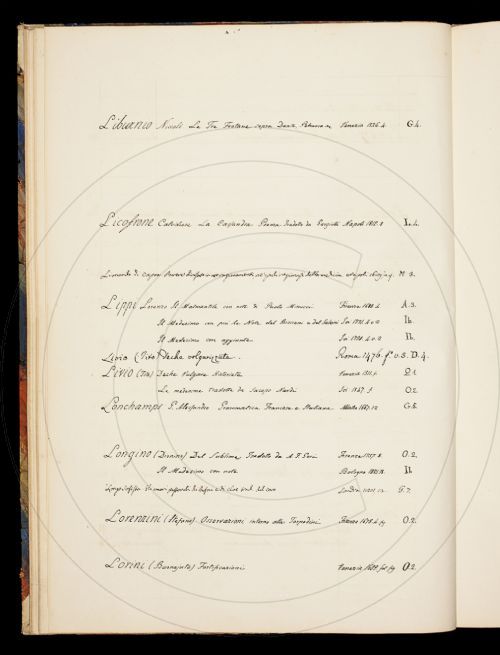 Liburnio Nicolò Le Tre Fontane sopra Dante, Petrarca Venezia 1526. 4 G. 4.
Licofrone Calcidese La Cassandra Poema tradotto da Gargiulli Napoli 1812. 8
Leonardo di Capoa Napoli M 3.
Lippi Lorenzo Il Malmantile con note di Puccio Firenze 1688. 4 A. 3.
Il Medesimo con più le Note del Biscioni e del Salvini Ivi 1731. 4. v. 2
Il Medesimo con aggiunte Ivi 1750. 4. v. 2
Livio (Tito) Deche volgarizzate. Roma 1476. fo. v. 3. D. 4.
Livio (Tito) Deche Volgare Historiate Venezia 1511. f. Q. 1
Le medesime tradotte da Jacopo Nardi Ivi 1547. f. O. 2.
Lonchamps P. Alessandro Grammatica Francese e Italiana G. 8.
Longino (Dionisio) Del Sublime Tradotto da A. F. Gori Firenze 1737. 8. O. 2.
Il Medesimo con note Bologna
Londra G. 7.
Lorenzini (Stefano) Osservazioni intorno alle Torpedini Firenze 1678. 4. fig. O. 2.
Lorini (Buonajuto) Fortificazioni Venezia 1609. fol. fig. O. 2.